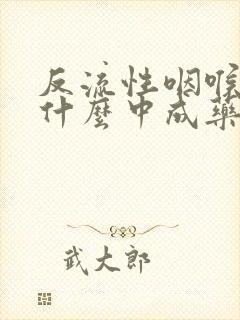 反流性咽喉
什麼中成藥
武大郎